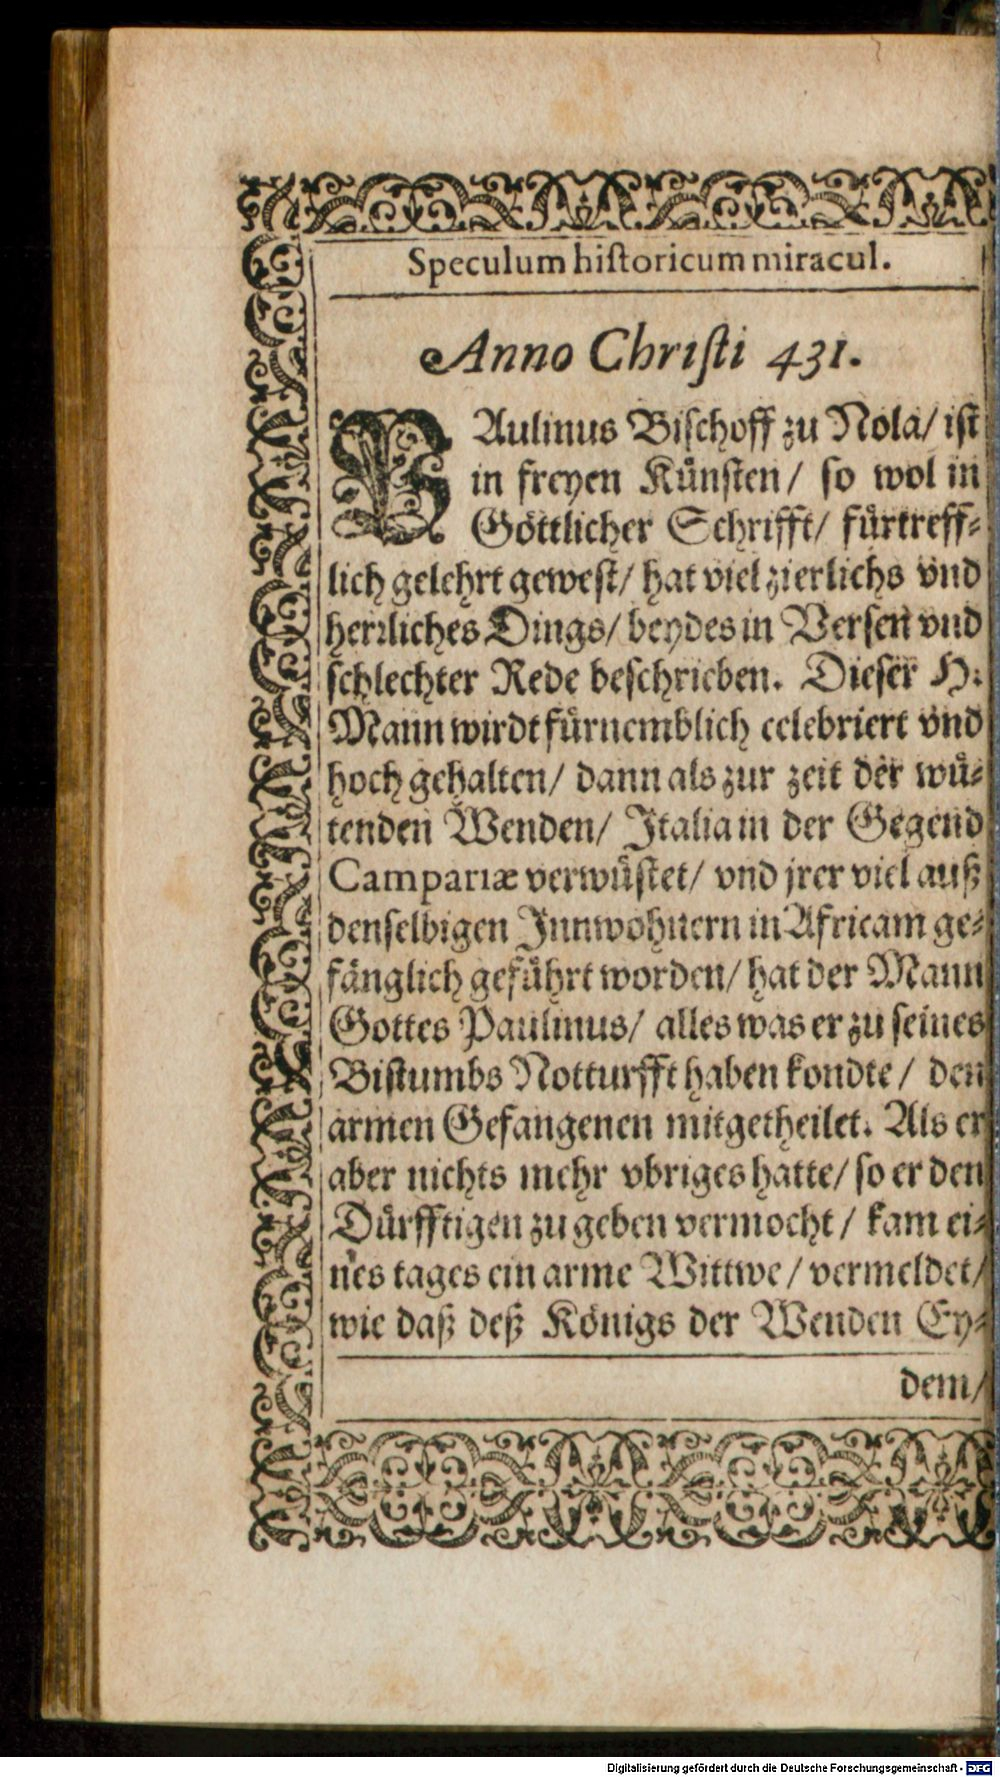 Speculum hiſtoricum miracul.
Anno Chriſti 431.
PAulinus Biſchoff zu Nola/ iſt
in freyen Kuͤnſten/ ſo wol in
Goͤttlicher Schrifft/ fuͤrtreff-
lich gelehrt geweſt/ hat viel zierlichs vnd
herꝛliches Dings/ beydes in Verſen vnd
ſchlechter Rede beſchrieben. Dieſer H.
Mann wirdt fuͤrnemblich celebriert vnd
hoch gehalten/ dann als zur zeit der wuͤ-
tenden Wenden/ Italia in der Gegend
Campariæ verwuͤſtet/ vnd jrer viel auß
denſelbigen Innwohnern in Africam ge-
faͤnglich gefuͤhrt worden/ hat der Mann
Gottes Paulinus/ alles was er zu ſeines
Biſtumbs Notturfft haben kondte/ den
armen Gefangenen mitgetheilet. Als er
aber nichts mehr vbriges hatte/ ſo er den
Duͤrfftigen zu geben vermocht/ kam ei-
nes tages ein arme Wittwe/ vermeldet/
wie daß deß Koͤnigs der Wenden Ey-
dem/
Digitalisierung gefördert durch die Deutsche Forschungsgemeinschaft - DFG